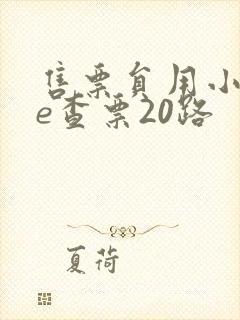 售票员用小
e查票20路
夏荷